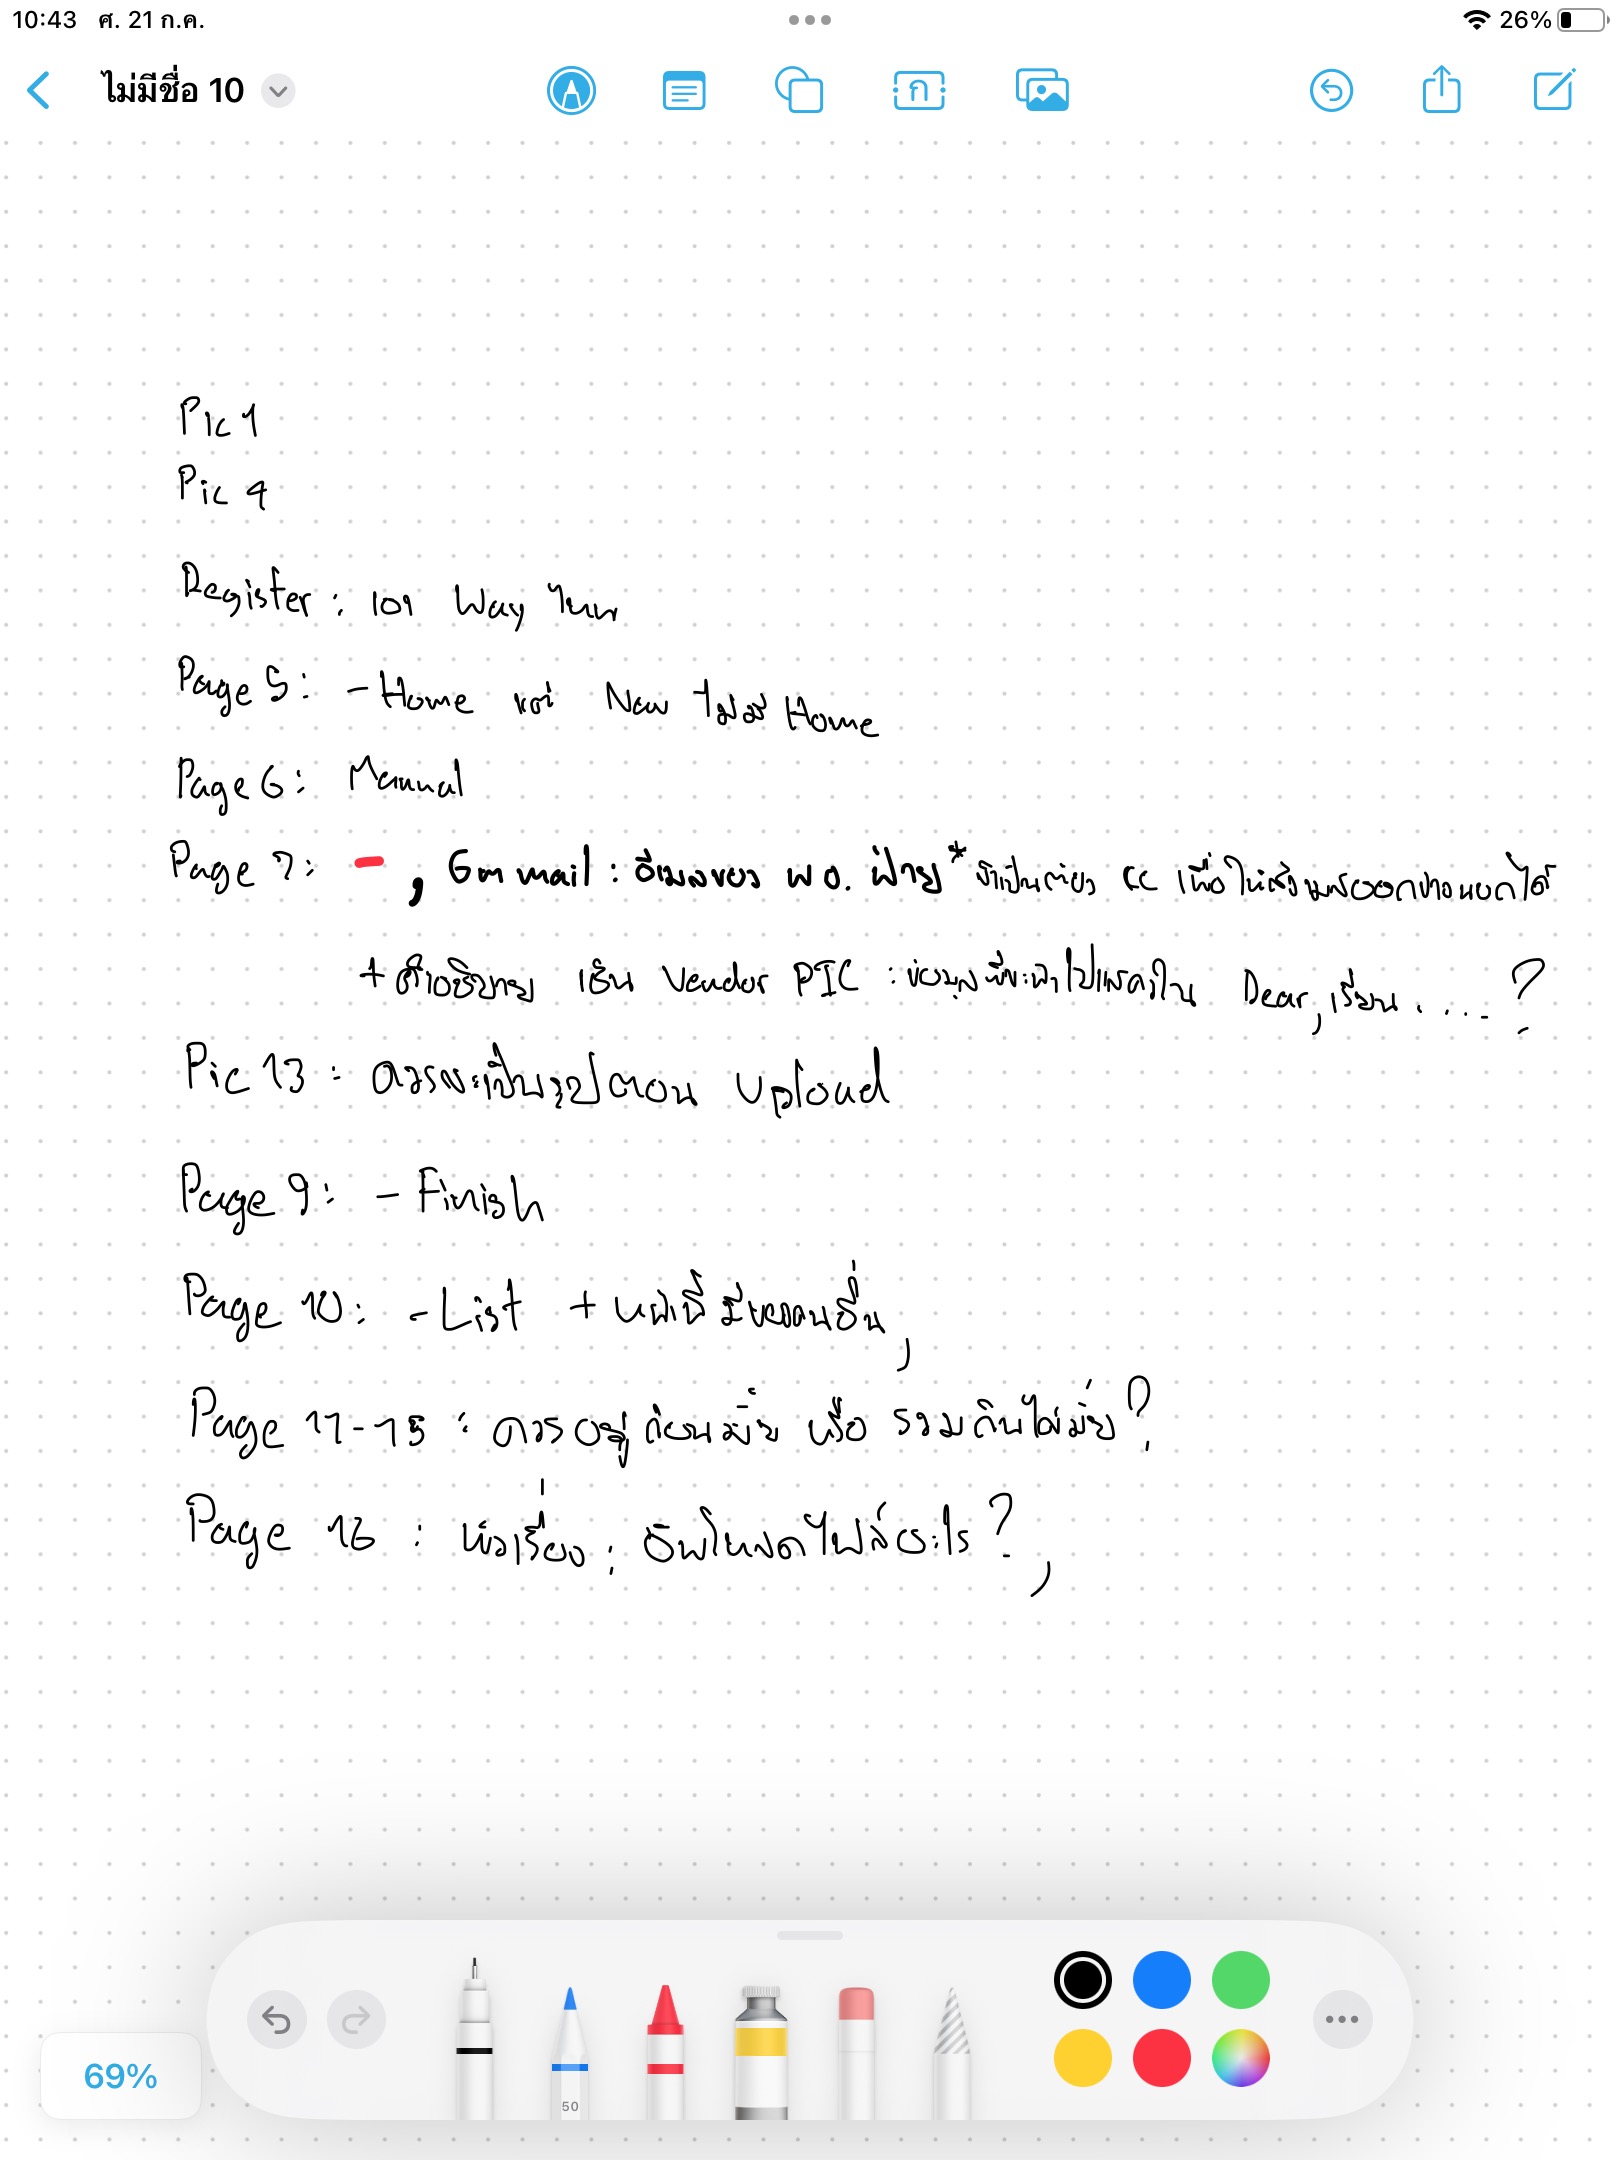 10:43 ศ. 21 ก.ค. 26%
ไม่มีชื่อ 10
Pic 1
Pic 4
Register : เอา Way ไหน
Page 5: - Home แต่ New ไม่มี Home
Page 6: Manual
Page 7: - , Gm mail : อีเมลของ พอ. ฝ่าย * จำเป็นต้อง CC เพื่อให้ส่งเมลออกข้างนอกได้
+ คำอธิบาย เช่น Vendor PIC : ข้อมูลที่จะนำไปแสดงใน Dear, เรียน .... ?
Pic 13 : ควรจะเป็นรูปตอน Upload
Page 9: - Finish
Page 10: - List + หน้านี้ มีของคนอื่น,
Page 11-15 : ควรอยู่ก่อนมั้ย หรือ รวมกันได้มั้ย?
Page 16 : หัวเรื่อง : อัพโหลดไฟล์อะไร?,
50
69%